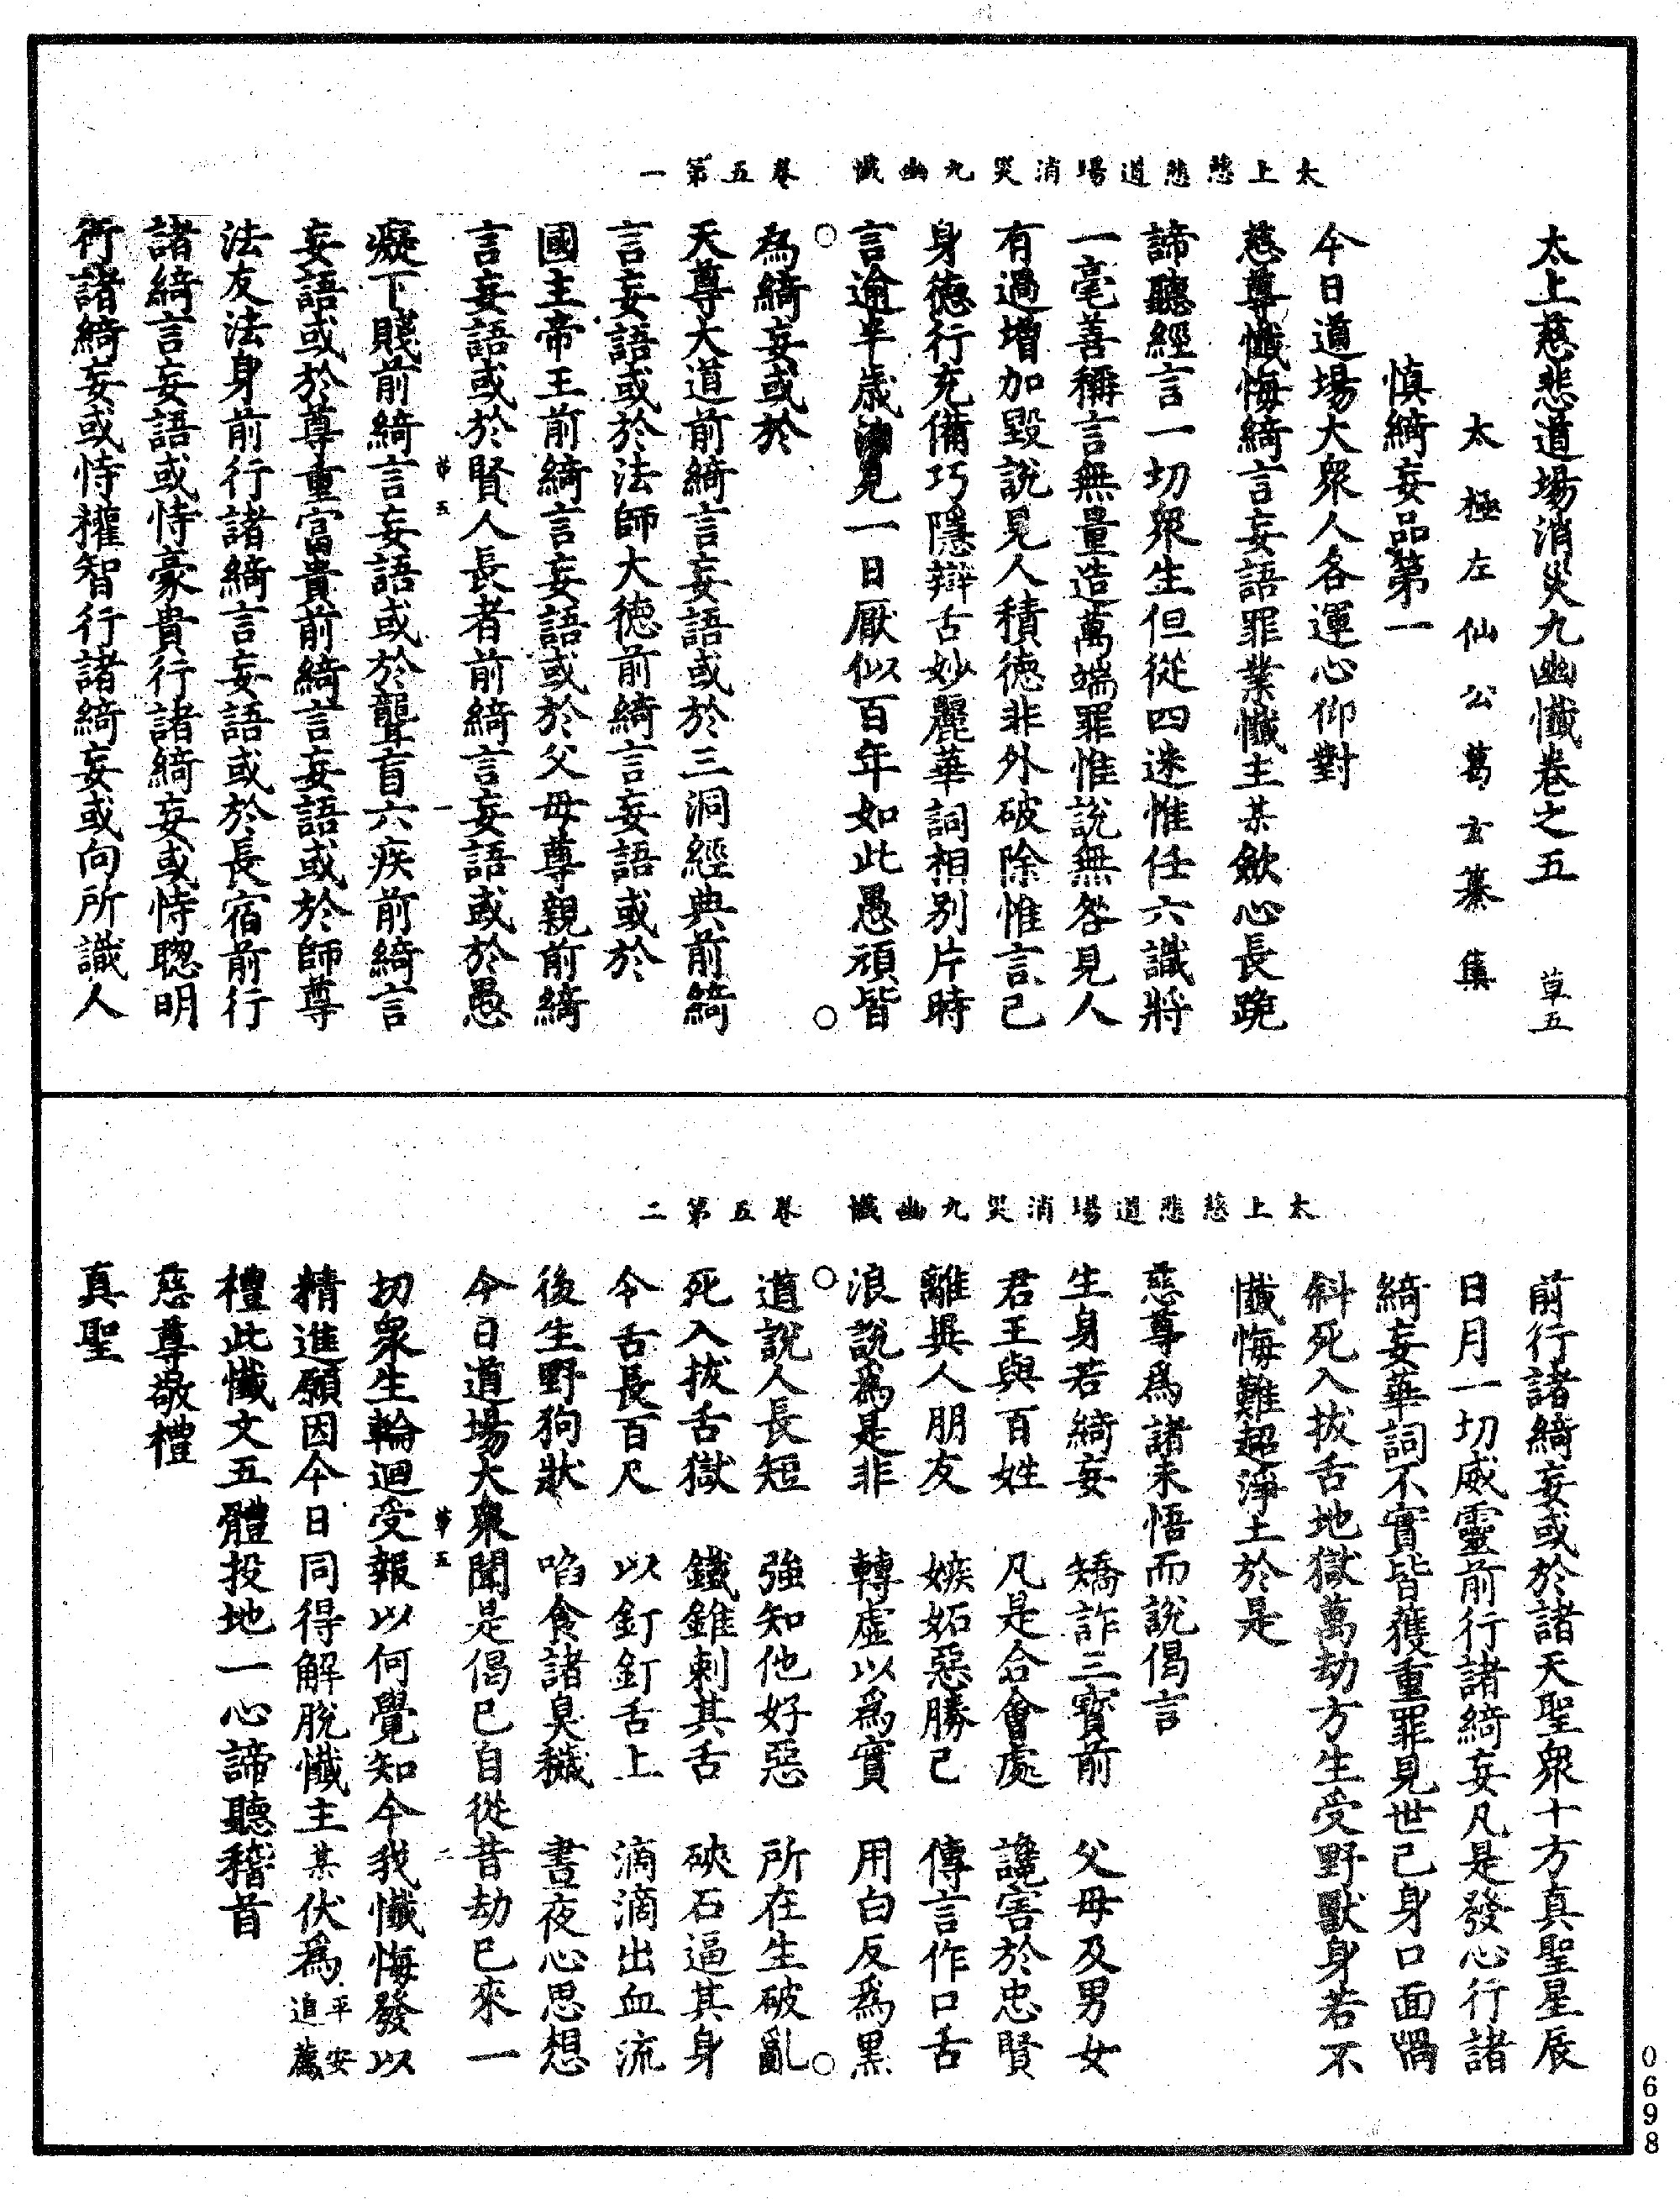 太上慈悲道場消災九幽懺　卷五第一
太上慈悲道場消災九幽懺卷之五　草五
太極左仙公葛玄纂集
慎綺妄品第一
今日道場大眾人各運心仰對
慈尊懺悔綺言妄語罪業懺主某斂心長跪
諦聽經言一切眾生但從四迷惟任六識將
一毫善稱言無量造萬端罪惟說無咎見人
有過增加毀說見人積德非外破除惟言己
身德行充備巧隱辯舌妙麗華詞相別片時
言逾半歲見一日厭似百年如此愚頑皆
為綺妄或於
天尊大道前綺言妄語或於三洞經典前綺
言妄語或於法師大德前綺言妄語或於
國主帝王前綺言妄語或於父母尊親前綺
言妄語或於賢人長者前綺言妄語或於愚
草五　一
癡下賤前綺言妄語或於聾盲六疾前綺言
妄語或於尊重富貴前綺言妄語或於師尊
法友法身前行諸綺言妄語或於長宿前行
諸綺言妄語或恃豪貴行諸綺妄或恃聰明
衒諸綺妄或恃權智行諸綺妄或向所識人
太上慈悲道場消災九幽懺　卷五第二
前行諸綺妄或於諸天聖眾十方真聖星辰
日月一切威靈前行諸綺妄凡是發心行諸
綺妄華詞不實皆獲重罪見世己身口面喎
斜死入拔舌地獄萬劫方生受野獸身若不
懺悔難超淨土於是
慈尊為諸未悟而說偈言
生身若綺妄　矯詐三寶前　父母及男女
君王與百姓　凡是合會處　讒害於忠賢
離異人朋友　嫉妬惡勝己　傳言作口舌
浪說為是非　轉虛以為實　用白反為黑
道說人長短　強知他好惡　所在生破亂
死入拔舌獄　鐵錐刺其舌　硤石逼其身
今舌長百尺　以釘釘舌上　滴滴出血流
後生野狗狀　啗食諸臭穢　晝夜心思想
今日道場大眾聞是偈已自從昔劫已來一
草五　二
切眾生輪迴受報以何覺知今我懺悔發以
精進願因今日同得解脫懺主某伏為平安追薦
禮此懺文五體投地一心諦聽稽首
慈尊敬禮
真聖
0698